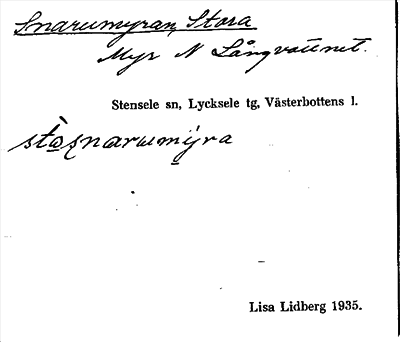 Snarumyran, Stora
Myr N Långvattnet.
Stensele sn, Lycksele tg, Västerbottens l.
stòsnarumýra
Lisa Lidberg 1935.